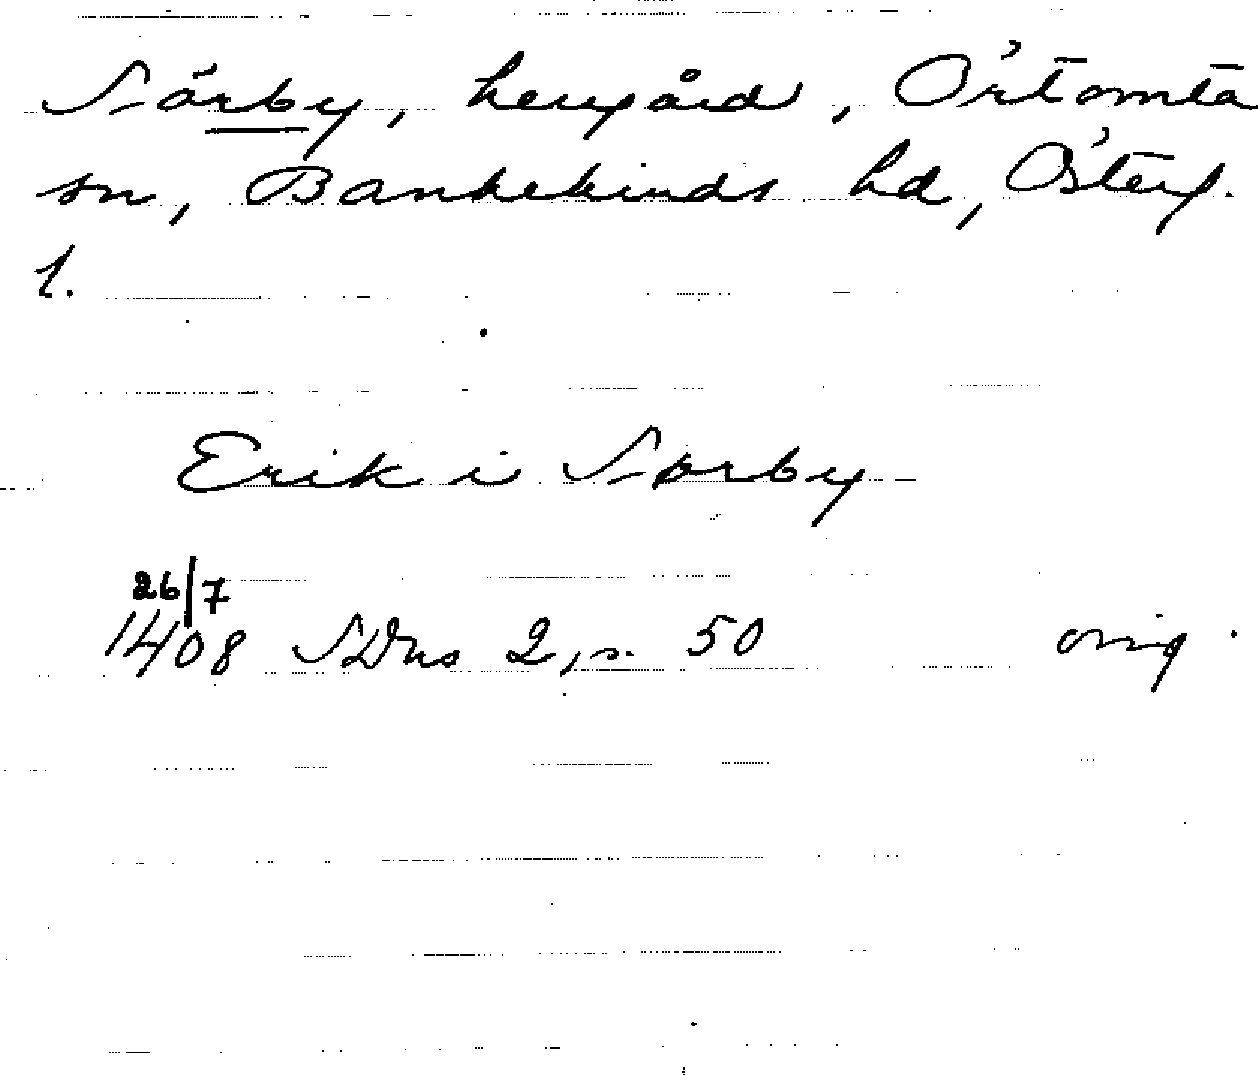 Sörby, herrgård, Örtomta
sn, Bankekinds hd, Österg.
l.
Erik i Sørby
26/7
1408 SDns 2, s. 50 orig.